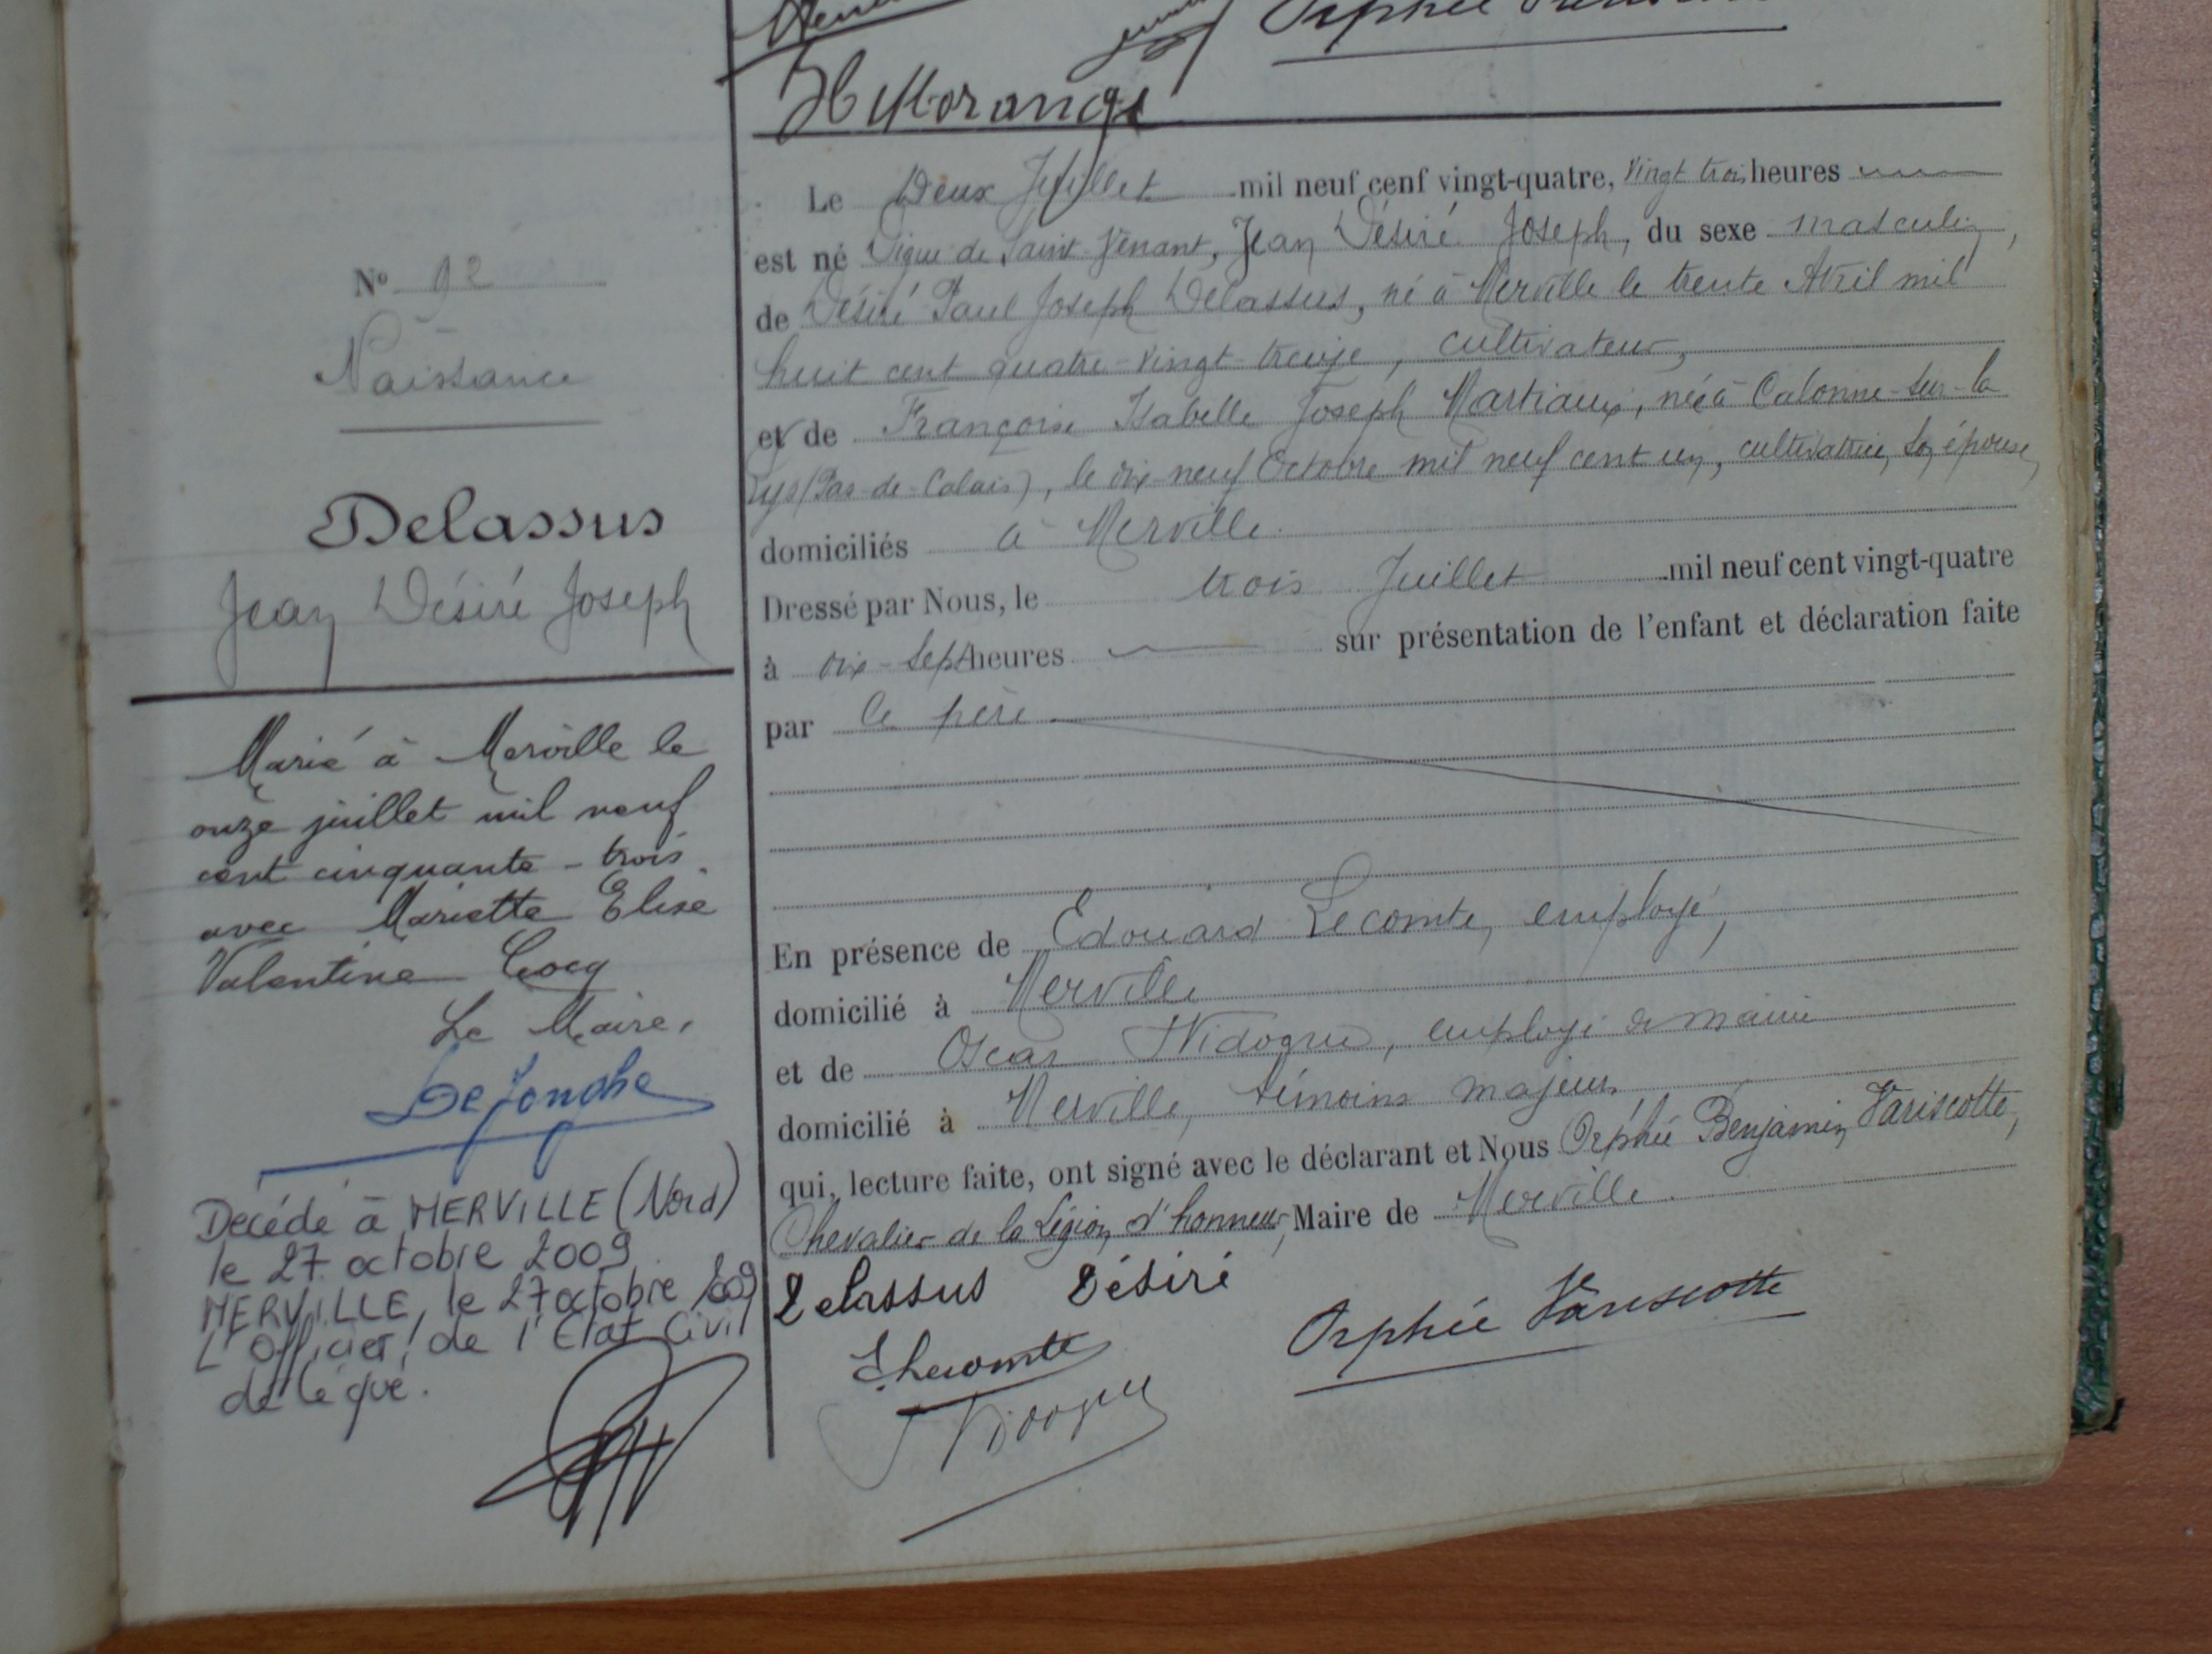 H Morange
Nº 92
Naissance
Delassus
Jean Désiré Joseph
Marié à Merville le
onze juillet mil neuf
cent cinquante-trois
avec Mariette Elise
Valentine Cocq
Le Maire,
Dejonghe
Decédé à MERVILLE (Nord)
le 27 octobre 2009
MERVILLE, le 27 octobre 2009
L'Officier de l'Etat Civil
délégué.
Le Deux Juillet mil neuf cent vingt-quatre, Vingt trois heures
est né Digue de Saint Venant, Jean Désiré Joseph, du sexe masculin,
de Désiré Paul Joseph Delassus, né à Merville le trente Avril mil
huit cent quatre-vingt-treize, cultivateur,
et de Françoise Isabelle Joseph Martiaux, née à Calonne-sur-la
Lys (Pas-de-Calais), le dix-neuf Octobre mil neuf cent un, cultivatrice, son épouse,
domiciliés à Merville.
Dressé par Nous, le trois Juillet mil neuf cent vingt-quatre
à dix-sept heures sur présentation de l'enfant et déclaration faite
par le père
En présence de Edouard Lecomte, employé,
domicilié à Merville
et de Oscar employé de mairie
domicilié à Merville, témoins majeurs
qui, lecture faite, ont signé avec le déclarant et Nous Orphée Benjamin Variscotte,
Chevalier de la Légion d'honneur, Maire de Merville.
Delassus Désiré
E Lecomte
Orphée Variscotte